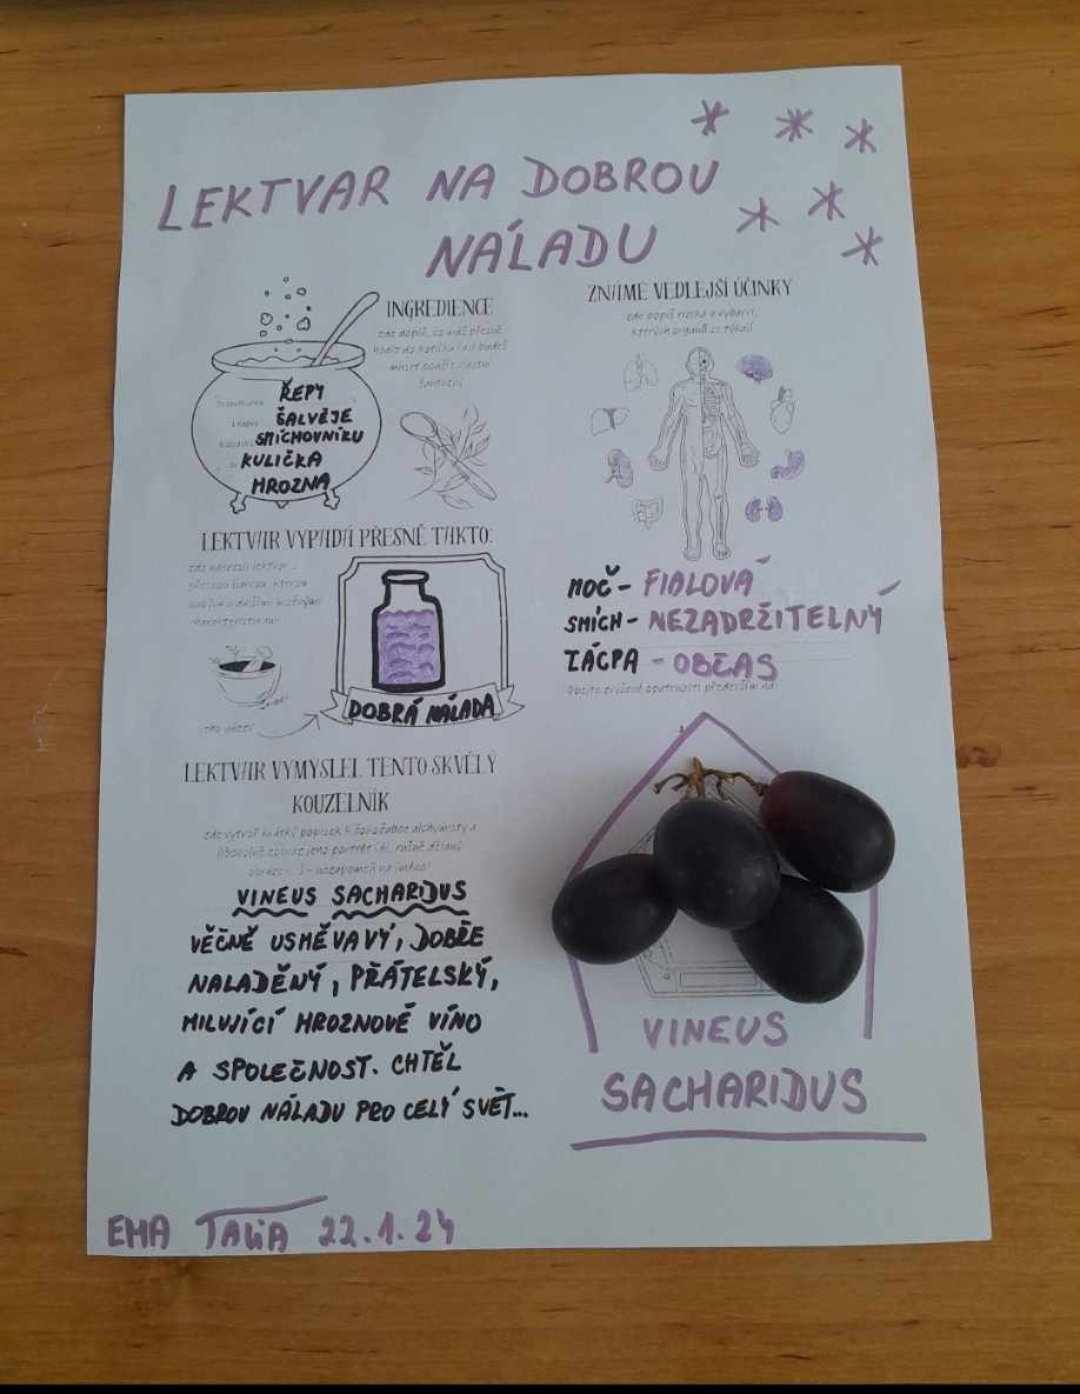 LEKTVAR NA DOBROU
NÁLADU
INGREDIENCE
ŘEPY
ŠALVĚJE
SMÍCHOVNÍKU
KULIČKA
HROZNA
LEKTVAR VYPADÁ PŘESNĚ TAKTO:
DOBRÁ NÁLADA
LEKTVAR VYMYSLEL TENTO SKVĚLÝ
KOUZELNÍK
VINEUS SACHARIDUS
VĚČNĚ USMĚVAVÝ, DOBŘE
NALADĚNÝ, PŘÁTELSKÝ,
MILUJÍCÍ HROZNOVÉ VÍNO
A SPOLEČNOST. CHTĚL
DOBROU NÁLADU PRO CELÝ SVĚT...
ZNÁME VEDLEJŠÍ ÚČINKY
MOČ - FIALOVÁ
SMÍCH - NEZADRŽITELNÝ
ZÁCPA - OBČAS
VINEUS
SACHARIDUS
EMA TALIA 22.1.24